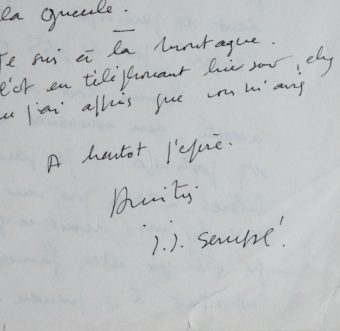 la gueule.
Je suis à la montagne.
C'est en téléphonant hier soir, chez
j'ai appris que
A bientôt j'espère.
Amitiés
J.J. Sempé!